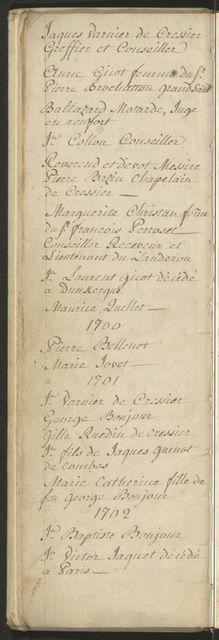 Jaques Varnier de Cressier
Greffier et Conseiller
Anne Guot femme du Sr.
Pierre
Baltazard Motarde, Juge
en renfort
Jn. Collon Conseiller
Reverend et devot Messire
Pierre Brezin Chapelain
de Cressier —
Marguerite Christan fême
du Sr. François Perroset
Conseiller Receveur et
Lieutenant du Landeron
Jn. Laurent Guot décédé
à Dunkerque
Maurice Quellet —
1700
Pierre Bellenot
Marie Jovet —
1701
Jn. Varnier de Cressier
George Bonjour
Gille Ruedin de Cressier
Jn. fils de Jaques Quenot
de Combes
Marie Catherine fille de
feu George Bonjour
1702
Jn. Baptiste Bonjour
Jn. Victor Jaquet décédé
à Paris —